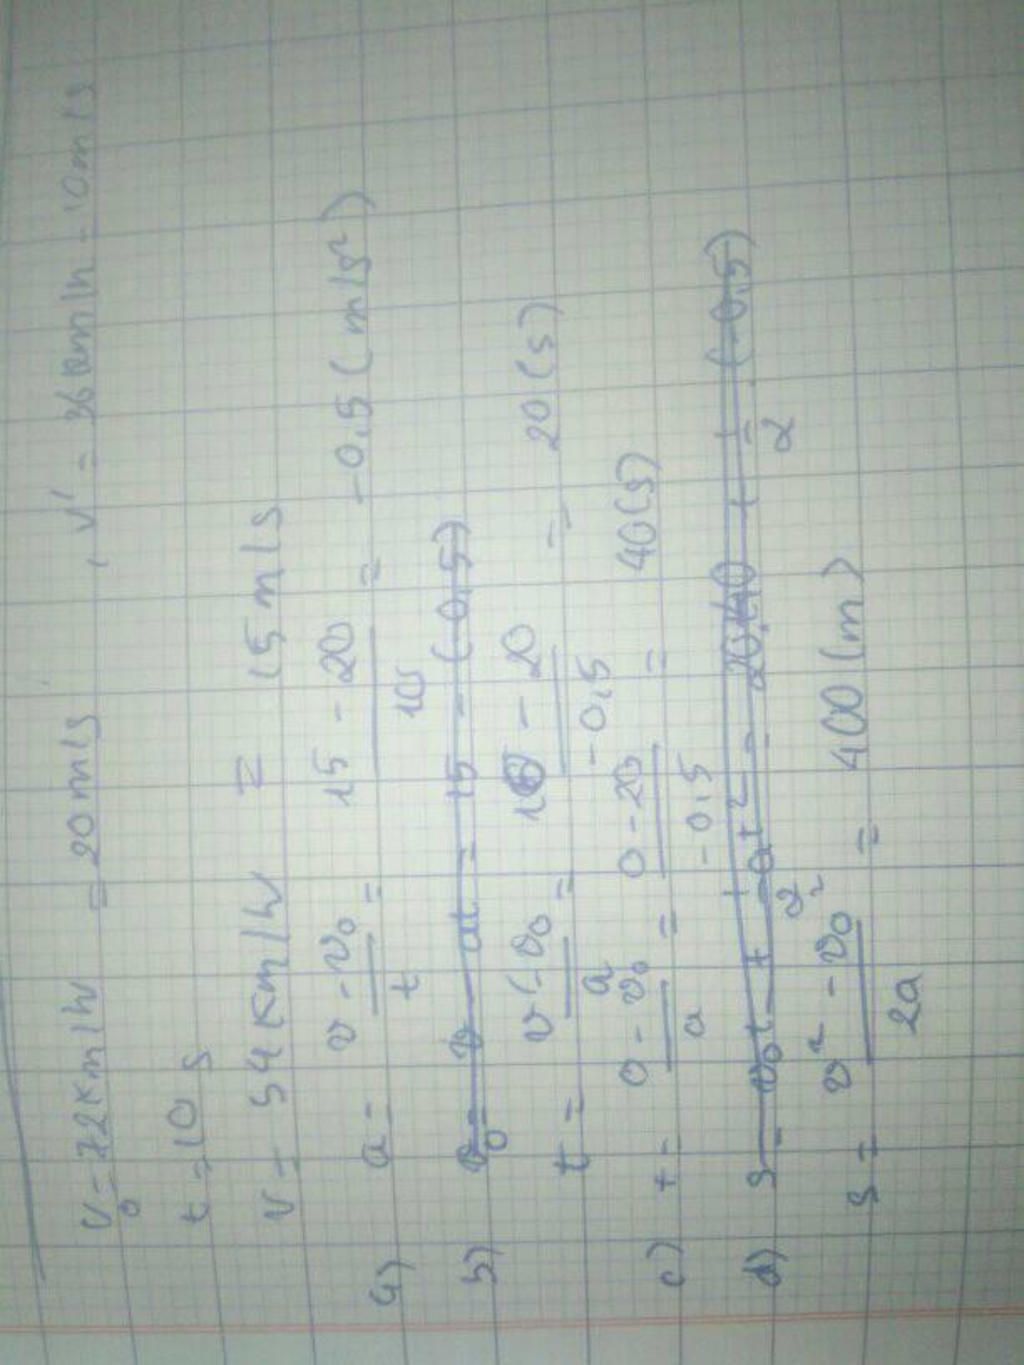 v₀ = 72 km/h = 20 m/s , v' = 36 km/h - 10 m/s
t = 10 s
v = 54 km/h = 15 m/s
a) a = (v - v₀)/t = (15 - 20)/10 = -0,5 (m/s²)
b) v₀ = v - at = 15 - (-0,5)
t = (v' - v₀)/a = (10 - 20)/-0,5 = 20 (s)
c) t = (0 - v₀)/a = (0 - 20)/-0,5 = 40 (s)
d) s = v₀t + at²/2 = 20.40 + 1/2 (-0,5)
s = (v² - v₀²)/2a = 400 (m)